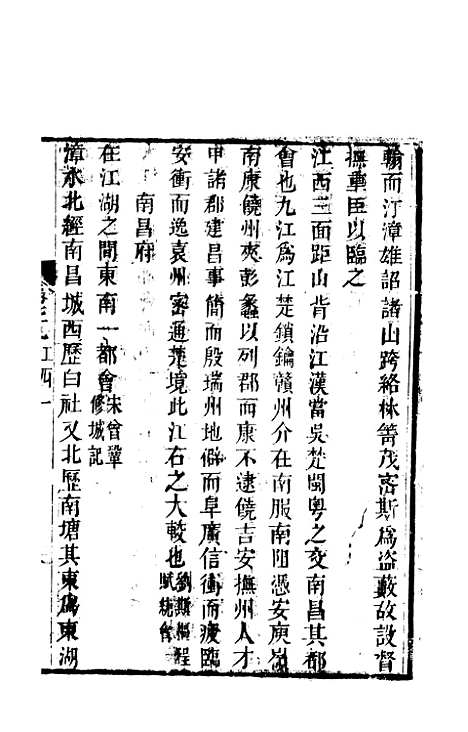 輸而汀漳雄詔諸山跨絡林箐茂密斯爲盜藪故設督
撫重臣以臨之
江西三面距山背沿江漢當吳楚閩粵之交南昌其都
會也九江爲江楚鎖鑰贛州介在南服南阻憑安庾嶺
南康饒州夾彭蠡以列郡而康不逮饒吉安撫州人才
甲諸郡建昌事簡而殷瑞州地僻而阜廣信衝而疲臨
安衝而逸袁州密邇楚境此江右之大較也劉斯樞程賦統會
南昌府
在江湖之間東南一都會宋曾鞏修城記
漳水北經南昌城西歷白社又北歷南塘其東爲東湖
江西一